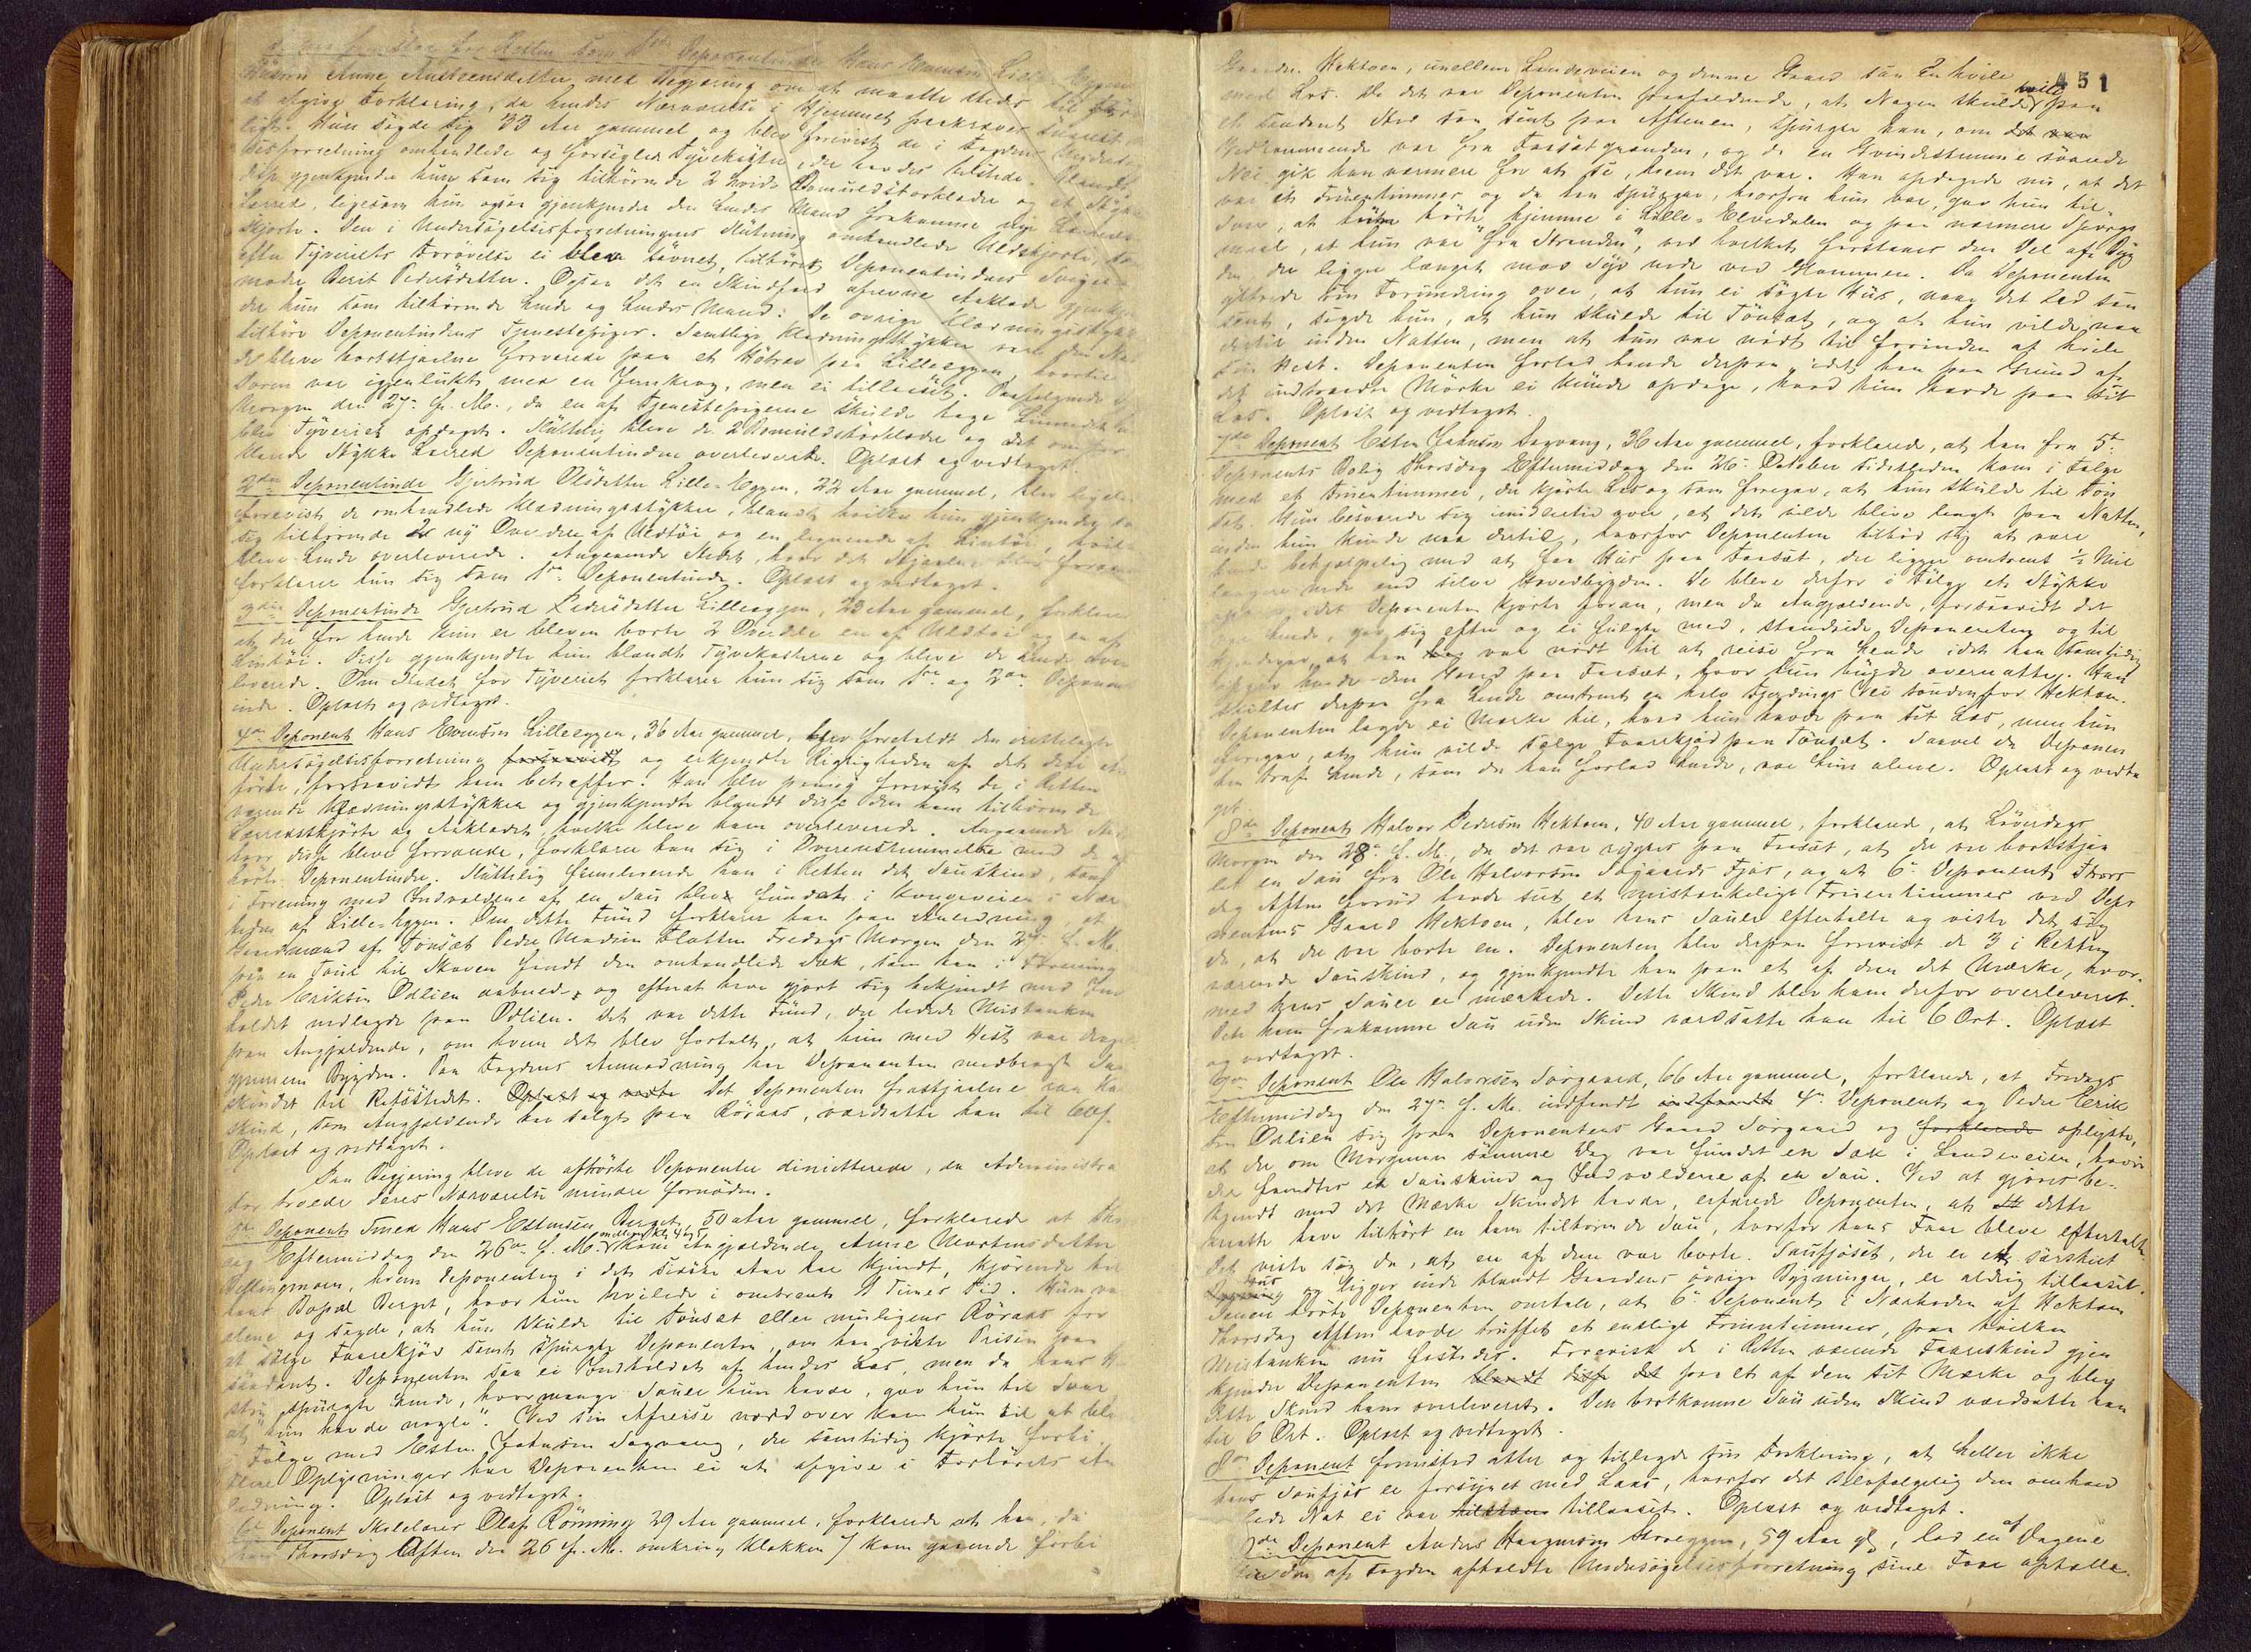 for Retten som 1ste Deponentinde Hans Evensøn Lille-Eggen
Hustru Anne Austensdatter med Begjæring om at maatte stedes til
at afgive Forklaring, da hendes Nærværelse i Hjemmet paakræves
ligt. Hun sagde sig 33 Aar gammel og blev forevist de i Fogdens Undersøg
elsesforretning omhandlede og forseglede Tyvekoster
disse gjenkjendte hun som sig tilhørende 2 hvide Bomuldstørklæder og et Stykke
Lærred, ligesom hun ogsaa gjenkjendte den hendes Mand frakomne nye Lærreds-
skjorte. Den i Undersøgelsesforretningens Slutning omhandlede Uldskjorte,
efter Tyveriets Forøvelse ei blev savnet, tilhører Deponentindens Sviger-
moder Berit Pedersdatter. Ogsaa det en Skindfeld afrevne Aaklæde gjenkjen
der hun som tilhørende hende og hendes Mand. De øvrige Klædningsstykker
tilhøre Deponentindens Tjenestepiger. Samtlige Klædningsstykker
de bleve bortstjaalne forvarede paa et paa Lilleeggen, hvortil
Døren var igjenlukt med en Jernkrog, men ei tillaaset. Paafølgende
Morgen den 27. f. M., da en af Tjenestepigerne skulde tage
blev Tyveriet opdaget. Sluttelig bleve de 2 Bomuldstørklæder og det omfor
klarede Stykke Lærred Deponentinden overleveret. Oplæst og vedtaget.
2den Deponentinde Gjertrud Olsdatter Lille-Eggen, 22 Aar gammel, blev ligeledes
forevist de omhandlede Klædningsstykker, blandt hvilke hun gjenkjendte
sig tilhørende et ny Overdel af Uldtøi og en lignende af Lintøi, hvilke
bleve hende overleverede. Angaaende Stedet, hvor det Stjaalne blev forvaret
forklarer hun sig som 1ste Deponentinde. Oplæst og vedtaget.
3die Deponentinde Gjertrud Pedersdatter Lilleeggen, 23 Aar gammel, forklarer
at der for hende kuns er bleven borte 2 Overdele en af Uldtøi og en af
Lintøi. Disse gjenkjendte hun blandt Tyvekosterne og bleve de hende over
leverede. Om Stedet for Tyveriet forklarer hun sig som 1ste og 2den Deponent
inde. Oplæst og vedtaget.
4de Deponent Hans Evensøn Lilleeggen, 36 Aar gammel, blev foreholdt den irettelagte
Undersøgelsesforretning forsaavidt og erkjendte Rigtigheden af det deri
førte, forsaavidt ham betræffer. Han blev forevist de i Retten
værende Klædningsstykker og gjenkjendte blandt disse den ham tilhørende
Lærredsskjorte og Aaklædet, hvilke bleve ham overleverede. Angaaende Stedet
hvor disse bleve forvarede, forklarer han sig i Overensstemmelse med de af
hørte Deponentinder. Sluttelig fremleverede han i Retten det Saueskind, som
i Forening med Indvoldene af en Sau blev fundet i Kongeveien i Nær
heden af Lille-Eggen. Om dette Fund forklarer han paa Anledning, at
Gaardmand af Tønset Peder Madsen Flatten Fredags Morgen den 27. f. M.
paa en Tour til Skoven fandt den omhandlede Sæk, som han i Forening
Peder Eriksen Odlien aabnede, og efterat have gjort sig bekjendt med Ind
holdet nedlagde paa Odlien. Det var dette Fund, der ledede Mistanken
paa Angjældende, om hvem det blev fortalt, at hun med Hest var dragen
gjennem Bygden. Paa Fogdens Anmodning har Deponenten medbragt Saue
skindet til Retsstedet. Oplæst og vedta Det Deponenten frastjaalne
skind, som Angjældende har solgt paa Røraas, værdsatte han til
Oplæst og vedtaget.
Paa Begjæring bleve de afhørte Deponenter dimitterede, da Administra
tor troede deres Nærværelse mindre fornøden.
5te Deponent Smed Hans Estensen Berget, 50 Aar gammel, forklarede at Thors
dag Eftermiddag den 26de f. M. mellem Kl. 4 og 5 kom Angjældende Anne Mortensdatter
Vollingmoen, hvem Deponenten i det sidste Aar har kjendt, kjørende til
hans Bopæl Berget, hvor hun hvilede i omtrent 1 Times Tid. Hun var
alene og sagde, at hun skulde til Tønset eller muligens Røraas for
at sælge Faarekjød samt spurgte Deponenten, om han vidste Prisen paa
saadant. Deponenten saa ei Indholdet af hendes Læs, men da hans
spurgte hende, hvormange Sauer hun havde, gav hun til Svar
at "hun havde nogle". Ved sin Afreise nordover kom hun til at blive
i Følge med Esten Johnsen Sagvang, der samtidig kjørte forbi.
Flere Oplysninger har Deponenten ei at afgive i Forhørets An
ledning. Oplæst og vedtaget.
6te Deponent Skolelærer Olaf Rønning 29 Aar gammel, forklarede at han, da
han Thorsdag Aften den 26 f. M. omkring Klokken 7 kom gaaende forbi
451
Gaarden Hektoen, imellem Landeveien og denne Gaard saa En hvile
med Læs. Da det var Deponenten paafaldende, at Nogen skulde hvile paa
et saadant Sted saa sent paa Aftenen, spurgte han, om det var
Vedkommende var fra Faasetgrænden, og da en Qvindestemme svarede
Nei gik han nærmere for at se, hvem det var. Han opdagede nu, at det
var et Fruentimmer og da han spurgte, hvorfra hun var, gav hun til
Svar, at hun hørte hjemme i Lille-Elvedalen og paa nærmere Spørgs
maal, at hun var "fra Stranden", ved hvilket forstaaes den Del af Byg
den der ligger længst mod Syd nede ved Glommen. Da Deponenten
yttrede sin Forundring over, at hun ei søgte Hus, naar det led saa
sent, sagde hun, at hun skulde til Tønset, og at hun vilde naa
dertil inden Natten, men at hun var nødt til forinden at hvile
sin Hest. Deponenten forlod hende derpaa, idet han paa Grund af
det indtraadte Mørke ei kunde opdage, hvad hun havde paa sit
Læs. Oplæst og vedtaget.
7de Deponent Esten Johnsøn Sagvang, 36 Aar gammel, forklarede, at han fra 5te
Deponents Bolig Thorsdag Eftermiddag den 26. October sidstleden kom i Følge
med et Fruentimmer, der kjørte Læs og som foregav, at hun skulde til Tøn
set. Hun besværede sig imidlertid over, at det vilde blive langt paa Natten,
inden hun kunde naa dertil, hvorfor Deponenten tilbød sig at være
hende behjælpelig med at faa Hus paa Faaset, der ligger omtrent 1/2 Miil
længere nede end selve Hovedbygden. De bleve derfor i Følge et Stykke
idet Deponenten kjørte foran, men da Angjældende, forsaavidt det
var hende, gav sig efter og ei fulgte med, standsede Deponenten og til
kjendegav, at han var nødt til at reise fra hende idet han samtidig
opgav hende den Gaard paa Faaset, hvor hun kunde overnatte. Han
skiltes derpaa fra hende omtrent en halv Fjerdings Vei søndenfor Hektoen.
Deponenten lagde ei Mærke til, hvad hun havde paa sit Læs, men hun
foregav, at hun vilde sælge Faarekjød paa Tønset. Saavel da Deponen
ten traf hende, som da han forlod hende, var hun alene. Oplæst og vedta
get.
8de Deponent Halvor Pedersøn Hektoen, 40 Aar gammel, forklarede, at Løverdags
Morgen den 28. f. M., da det var rygtes paa Faaset, at der var bortstjaa
let en Sau fra Ole Halvorsøn Søgaards Fjøs, og at 6. Deponent Thors
dag Aften forud havde seet et mistænkeligt Fruentimmer ved Depo
nentens Gaard Hektoen, blev hans Sauer eftertalte og viste det sig
da, at der var borte en. Deponenten blev derpaa forevist de 3 i Retten
værende Saueskind, og gjenkjendte han paa et af dem det Mærke, hvor-
med hans Sauer er mærkede. Dette Skind blev ham derfor overleveret.
Den ham frakomne Sau uden Skind værdsatte han til 6 Ort. Oplæst
og vedtaget.
9de Deponent Ole Halvorsen Sørgaard, 66 Aar gammel, forklarede, at Fredags
Eftermiddag den 27de f. M. indfandt indfandt 4de Deponent og Peder Erik
sen Odlien sig paa Deponentens Gaard Sørgaard og forklarede oplyste,
at der om Morgenen samme Dag var fundet en Sæk i Landeveien, hvori
der fandtes et Saueskind og Indvoldene af en Sau. Ved at gjøres be-
kjendt med det Mærke Skindet havde, erfarede Deponenten, at dette
maatte have tilhørt en ham tilhørende Sau, hvorfor hans Faar bleve eftertalte.
Det viste sig da, at en af dem var borte. Saufjøset, der er et særskilt
Hus og ligger inde blandt Gaardens øvrige Bygninger, er aldrig tillaaset.
Senere hørte Deponenten omtale, at 6. Deponent i Nærheden af Hektoen
Thorsdag Aften havde truffet et enslige Fruentimmer, paa hvilken
Mistanken nu fæstedes. Forevist de i Retten værende Faareskind gjen
kjender Deponenten blandt disse det paa et af dem sit Mærke og blev
dette Skind ham overleveret. Den bortkomne Sau uden Skind værdsatte han
til 6 Ort. Oplæst og vedtaget.
8de Deponent fremstod atter og tillagde sin Forklaring, at heller ikke
hans Saufjøs er forsynet med Laas, hvorfor det selvfølgelig den omhand
lede Nat ei var tillaaset. Oplæst og vedtaget.
Deponent Anders Haagensøn Storeggen, 59 Aar gl, lod en af Dagene
den af Fogden afholdte Undersøgelsesforretning sine Faar optælle